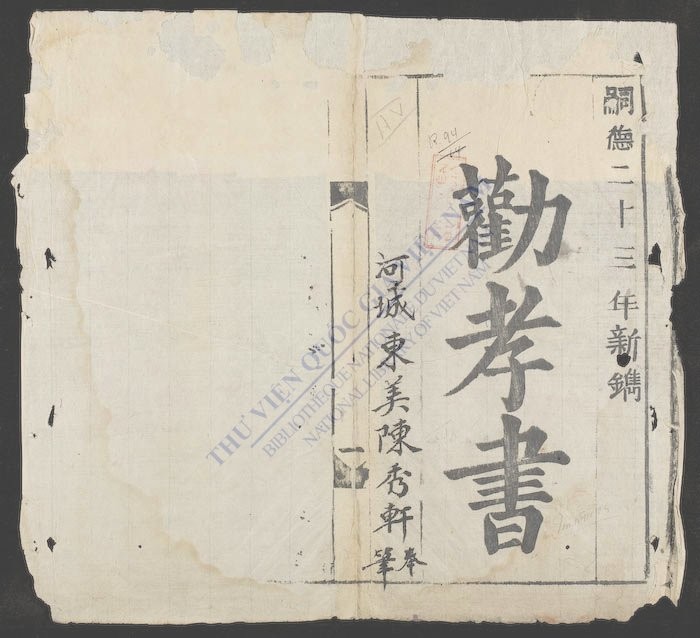 嗣德二十三年新鐫
勸孝書
河城東美陳秀軒奉筆
一
R.94
THƯ VIỆN QUỐC GIA VIỆT NAM
BIBLIOTHÈQUE NATIONALE DU VIETNAM
NATIONAL LIBRARY OF VIETNAM